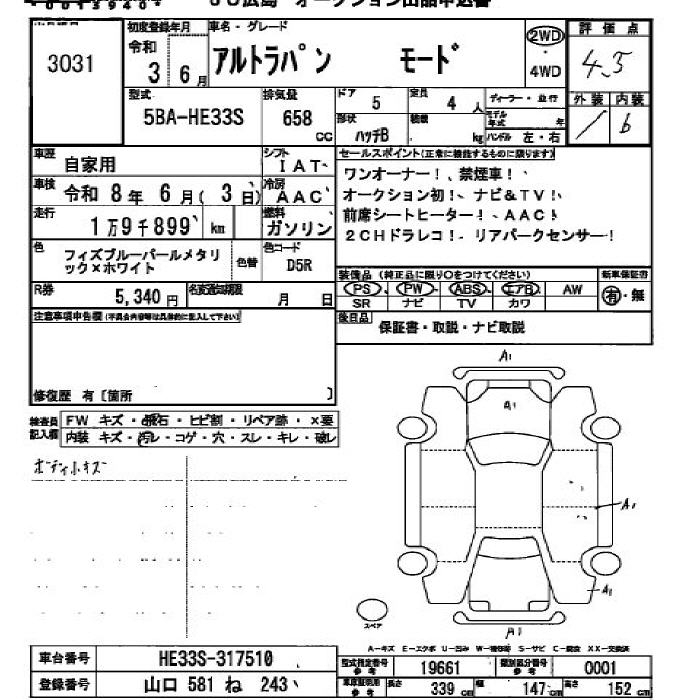 オークション出品申込書
3031
初度登録年月
令和
3 6 月
車名・グレード
アルトラパン モード
2WD
・
4WD
評価点
4.5
外装 内装
/ b
型式
5BA-HE33S
排気量
658
cc
ドア
5
定員
4 人
形状
ハッチB
積載
kg
ディーラー・並行
モデル
年式 年
ハンドル 左・右
車歴
自家用
シフト
IAT
車検
令和 8 年 6 月( 3 日)
冷房
AAC
走行
1万9千899 km
燃料
ガソリン
色
フィズブルーパールメタリ
ック×ホワイト
色替
色コード
D5R
R券
5,340 円
名変通知期限
月 日
セールスポイント(正常に機能するものに限ります)
ワンオーナー!、禁煙車!、
オークション初!、ナビ&TV!、
前席シートヒーター!、AAC!
2CHドラレコ!、リアパークセンサー!
装備品(純正品に限り○をつけてください)
新車保証書
PS PW ABS エアB AW
SR ナビ TV カワ
有・無
後日品
保証書・取説・ナビ取説
注意事項申告欄(不具合内容等は具体的に記入して下さい)
修復歴 有〔箇所 〕
検査員
記入欄
FW キズ・飛石・ヒビ割・リペア跡・X要
内装 キズ・汚レ・コゲ・穴・スレ・キレ・破レ
ボディ小キズ
A1
A1
A1
A1
A1
スペア
A-キズ E-エクボ U-凹み W-補修跡 S-サビ C-腐食 XX-交換済
車台番号
HE33S-317510
登録番号
山口 581 ね 243
型式指定番号
参考
19661
類別区分番号
参考
0001
車庫証明用
参考
長さ 339 cm 幅 147 cm 高さ 152 cm